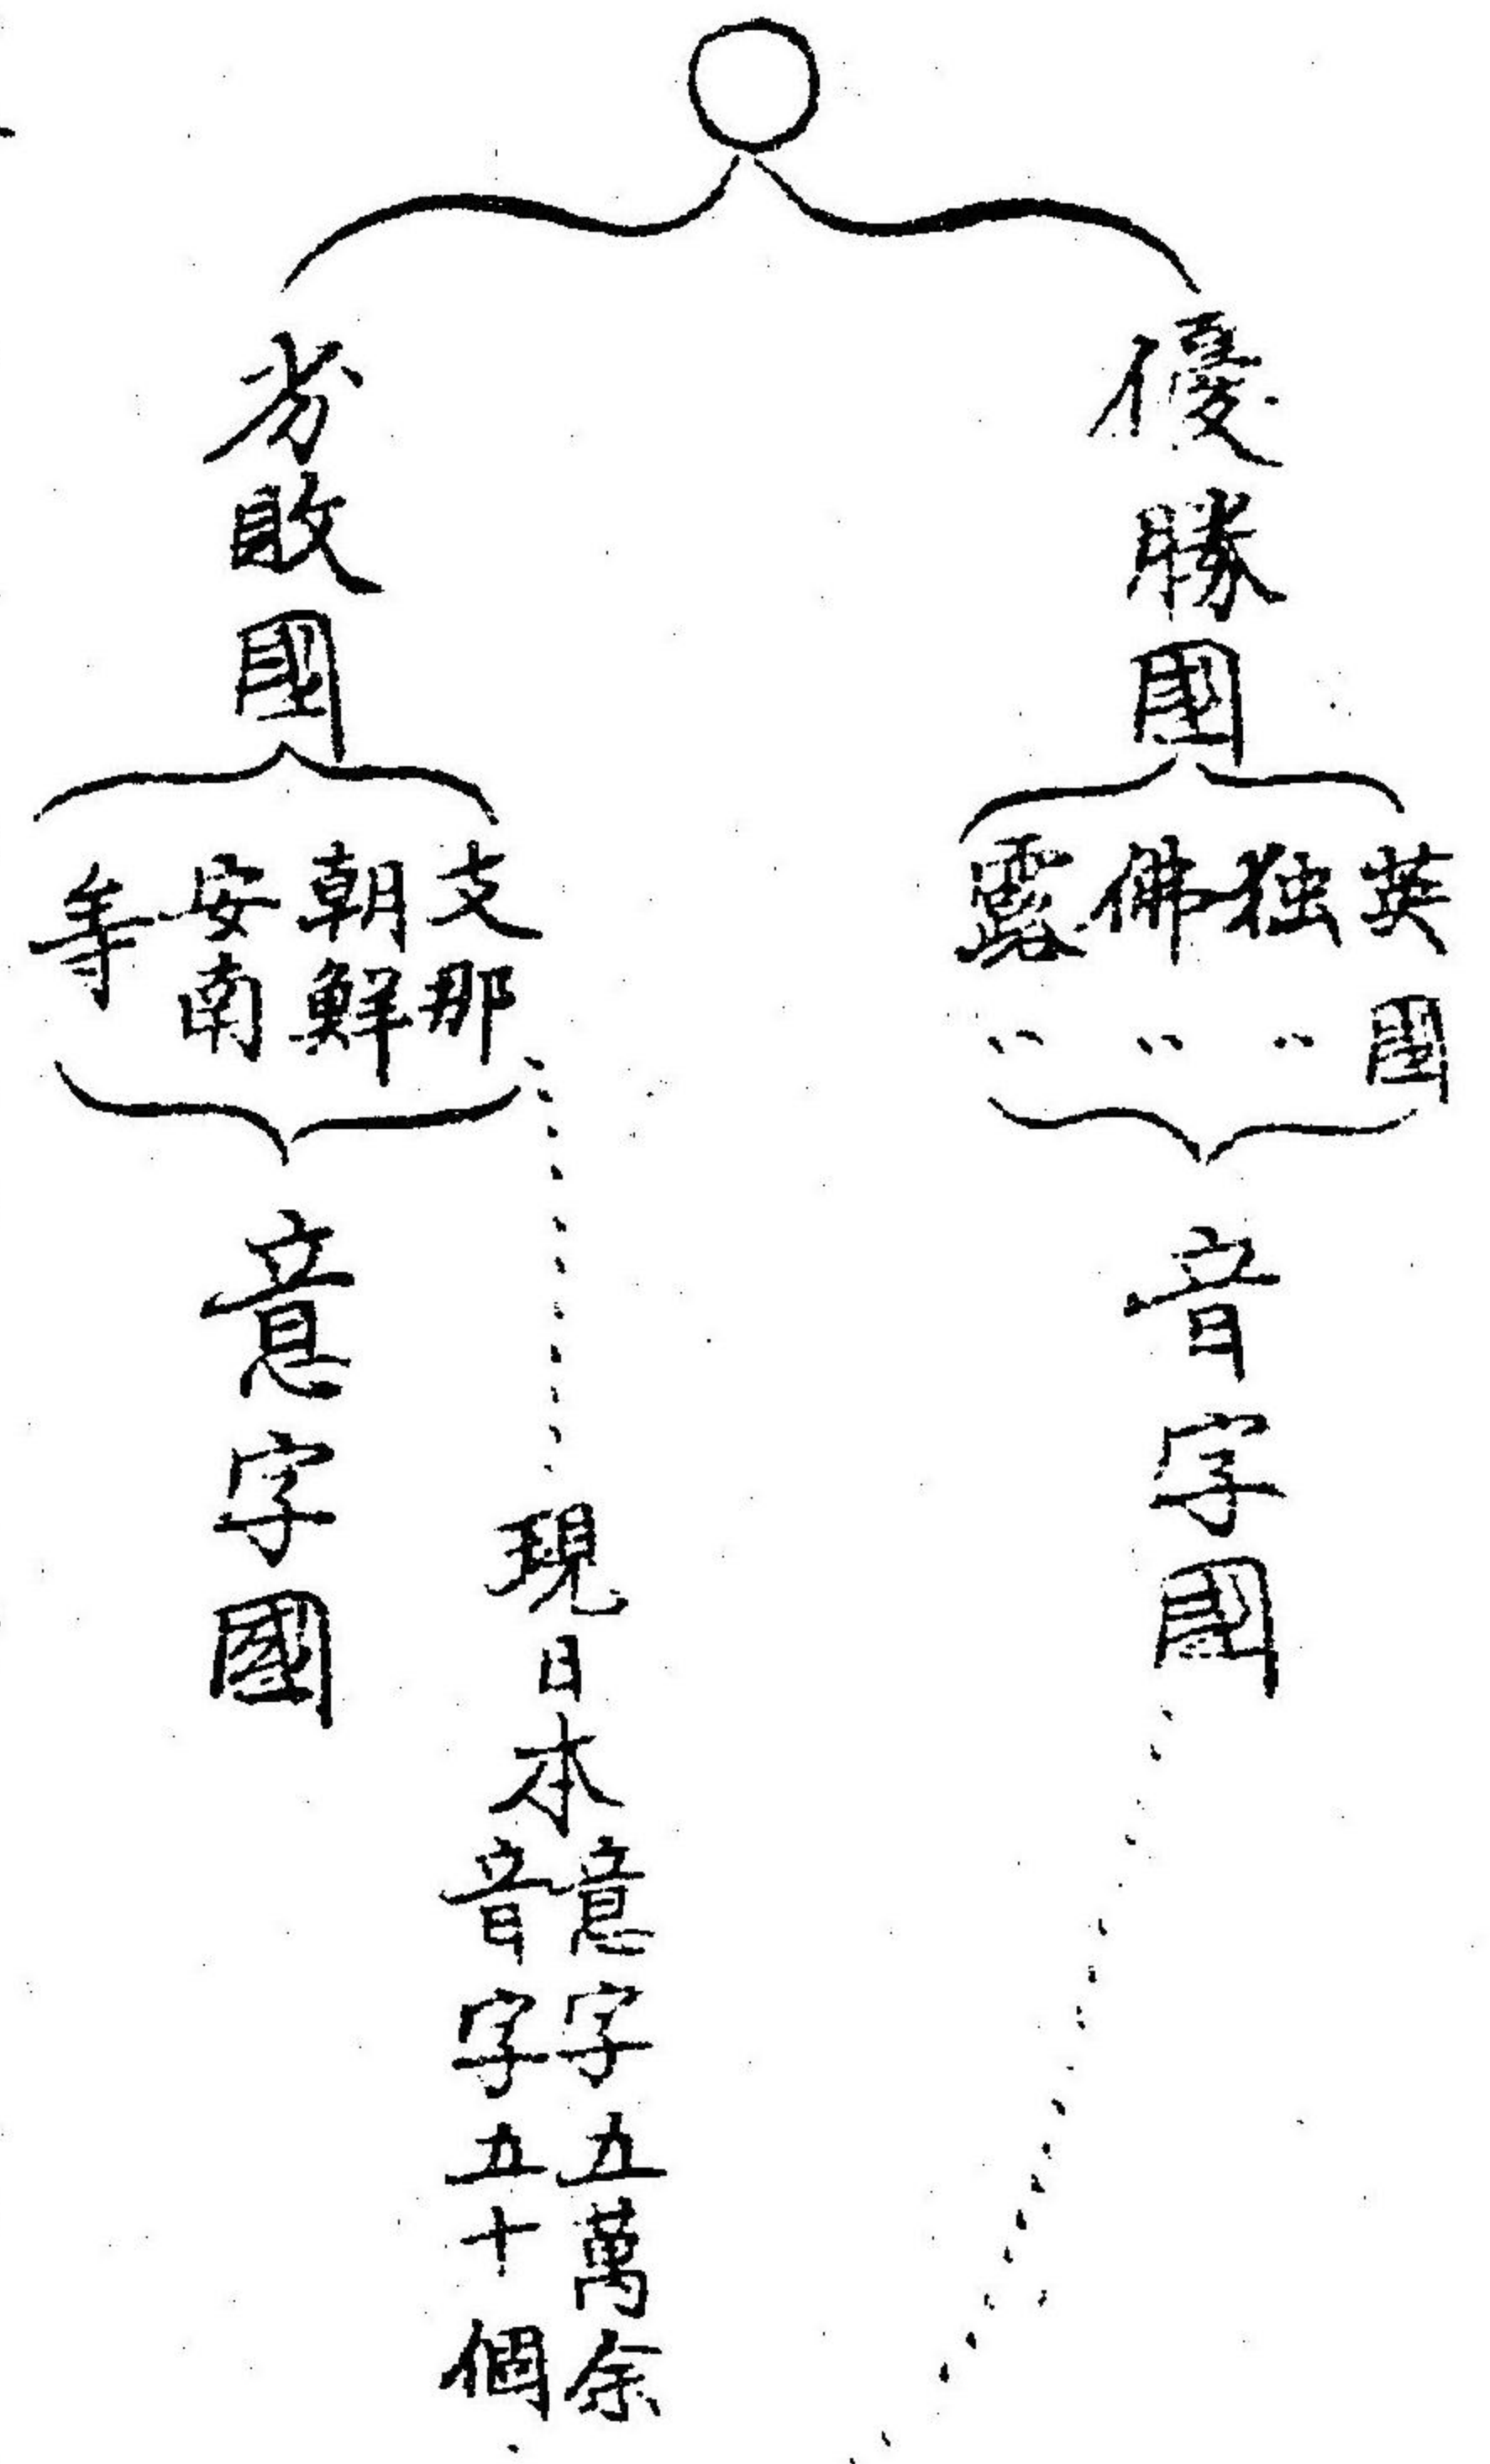 優勝國
英国
独〃
佛〃
露〃
音字國
劣敗國
支那
朝鮮
安南
等
意字國
現日本
意字五萬余
音字五十個